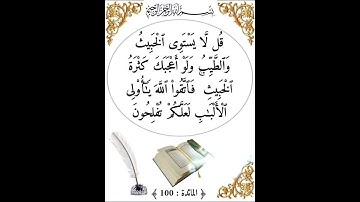 بسم الله الرحمن الرحيم
قُل لَّا يَسْتَوِى ٱلْخَبِيثُ
وَٱلطَّيِّبُ وَلَوْ أَعْجَبَكَ كَثْرَةُ
ٱلْخَبِيثِ ۚ فَٱتَّقُوا۟ ٱللَّهَ يَـٰٓأُو۟لِى
ٱلْأَلْبَـٰبِ لَعَلَّكُمْ تُفْلِحُونَ
﴿ المائدة : 100 ﴾